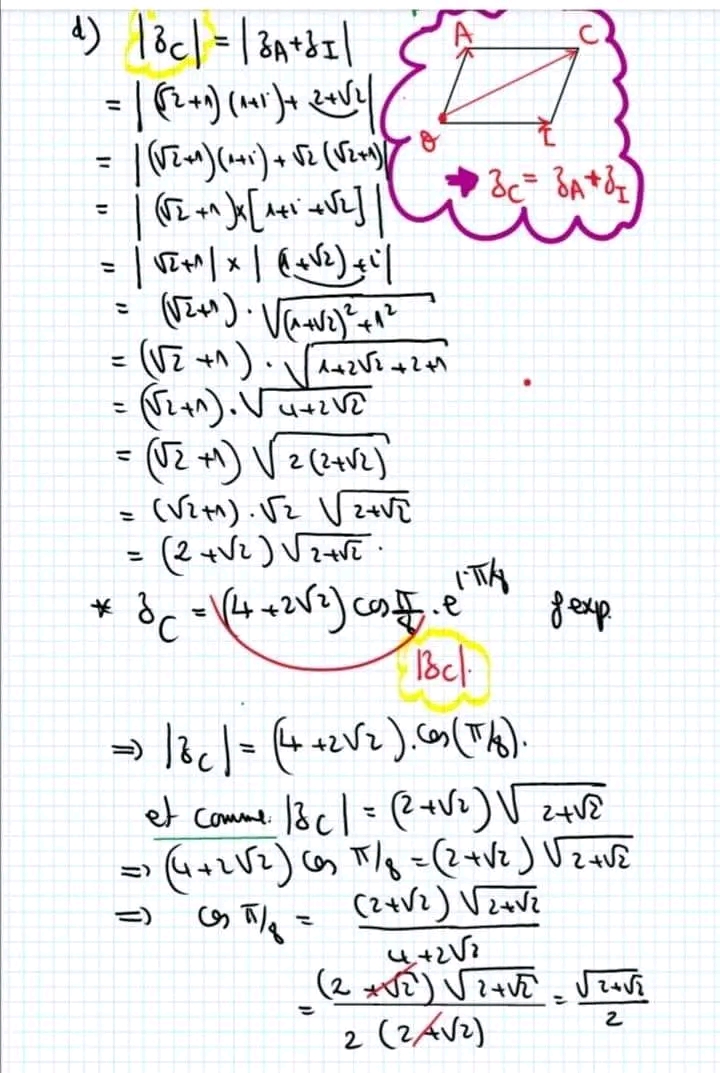 d) |z_C| = |z_A+z_I|
= |(√2+1)(1+i)+ 2+√2|
= |(√2+1)(1+i)+√2(√2+1)|
= |(√2+1)×[1+i+√2]|
= |√2+1| × |(1+√2)+i|
= (√2+1)·√((1+√2)²+1²)
= (√2+1)·√(1+2√2+2+1)
= (√2+1)·√(4+2√2)
= (√2+1)√(2(2+√2))
= (√2+1)·√2 √(2+√2)
= (2+√2)√(2+√2)·
A C
O I
➡ z_C = z_A+z_I
* z_C = (4+2√2) cos π/8 · e^(iπ/8) f exp.
|z_C|.
⇒ |z_C| = (4+2√2).cos(π/8).
et comme: |z_C| = (2+√2)√(2+√2)
⇒ (4+2√2) cos π/8 = (2+√2)√(2+√2)
⇒ cos π/8 = (2+√2)√(2+√2) / (4+2√2)
= (2+√2)√(2+√2) / 2(2+√2) = √(2+√2) / 2